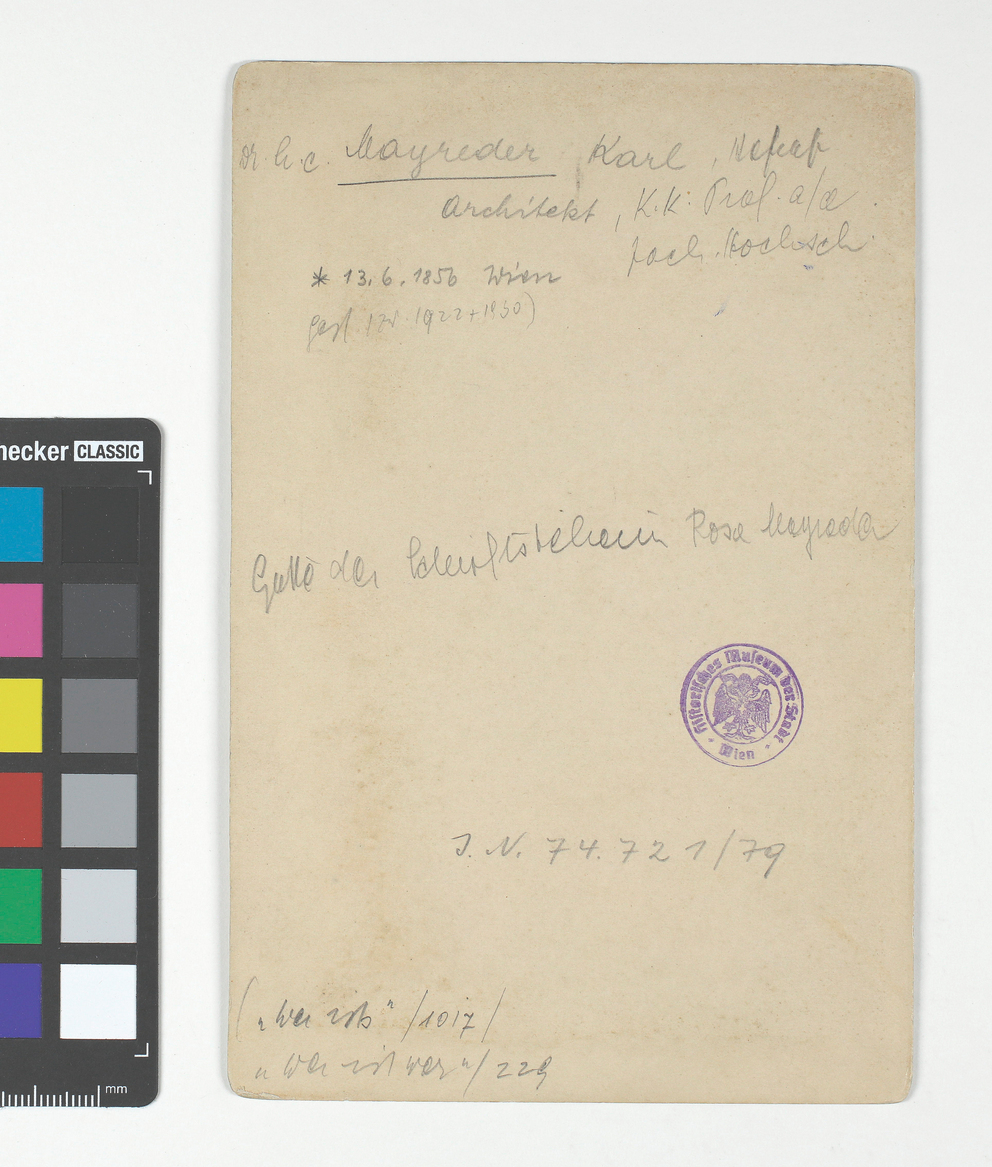 necker CLASSIC
Dr. h. c. Mayreder Karl, Hofrat
Architekt, K.K. Prof. a/d
tech. Hochsch.
* 13.6.1856 Wien
1922 + 1930)
Gatte der Schriftstellerin Rosa Mayreder
Historisches Museum der Stadt
Wien
J. N. 74.721/79
("Wer ists" /1017/
"Wer ist wer"/229
mm